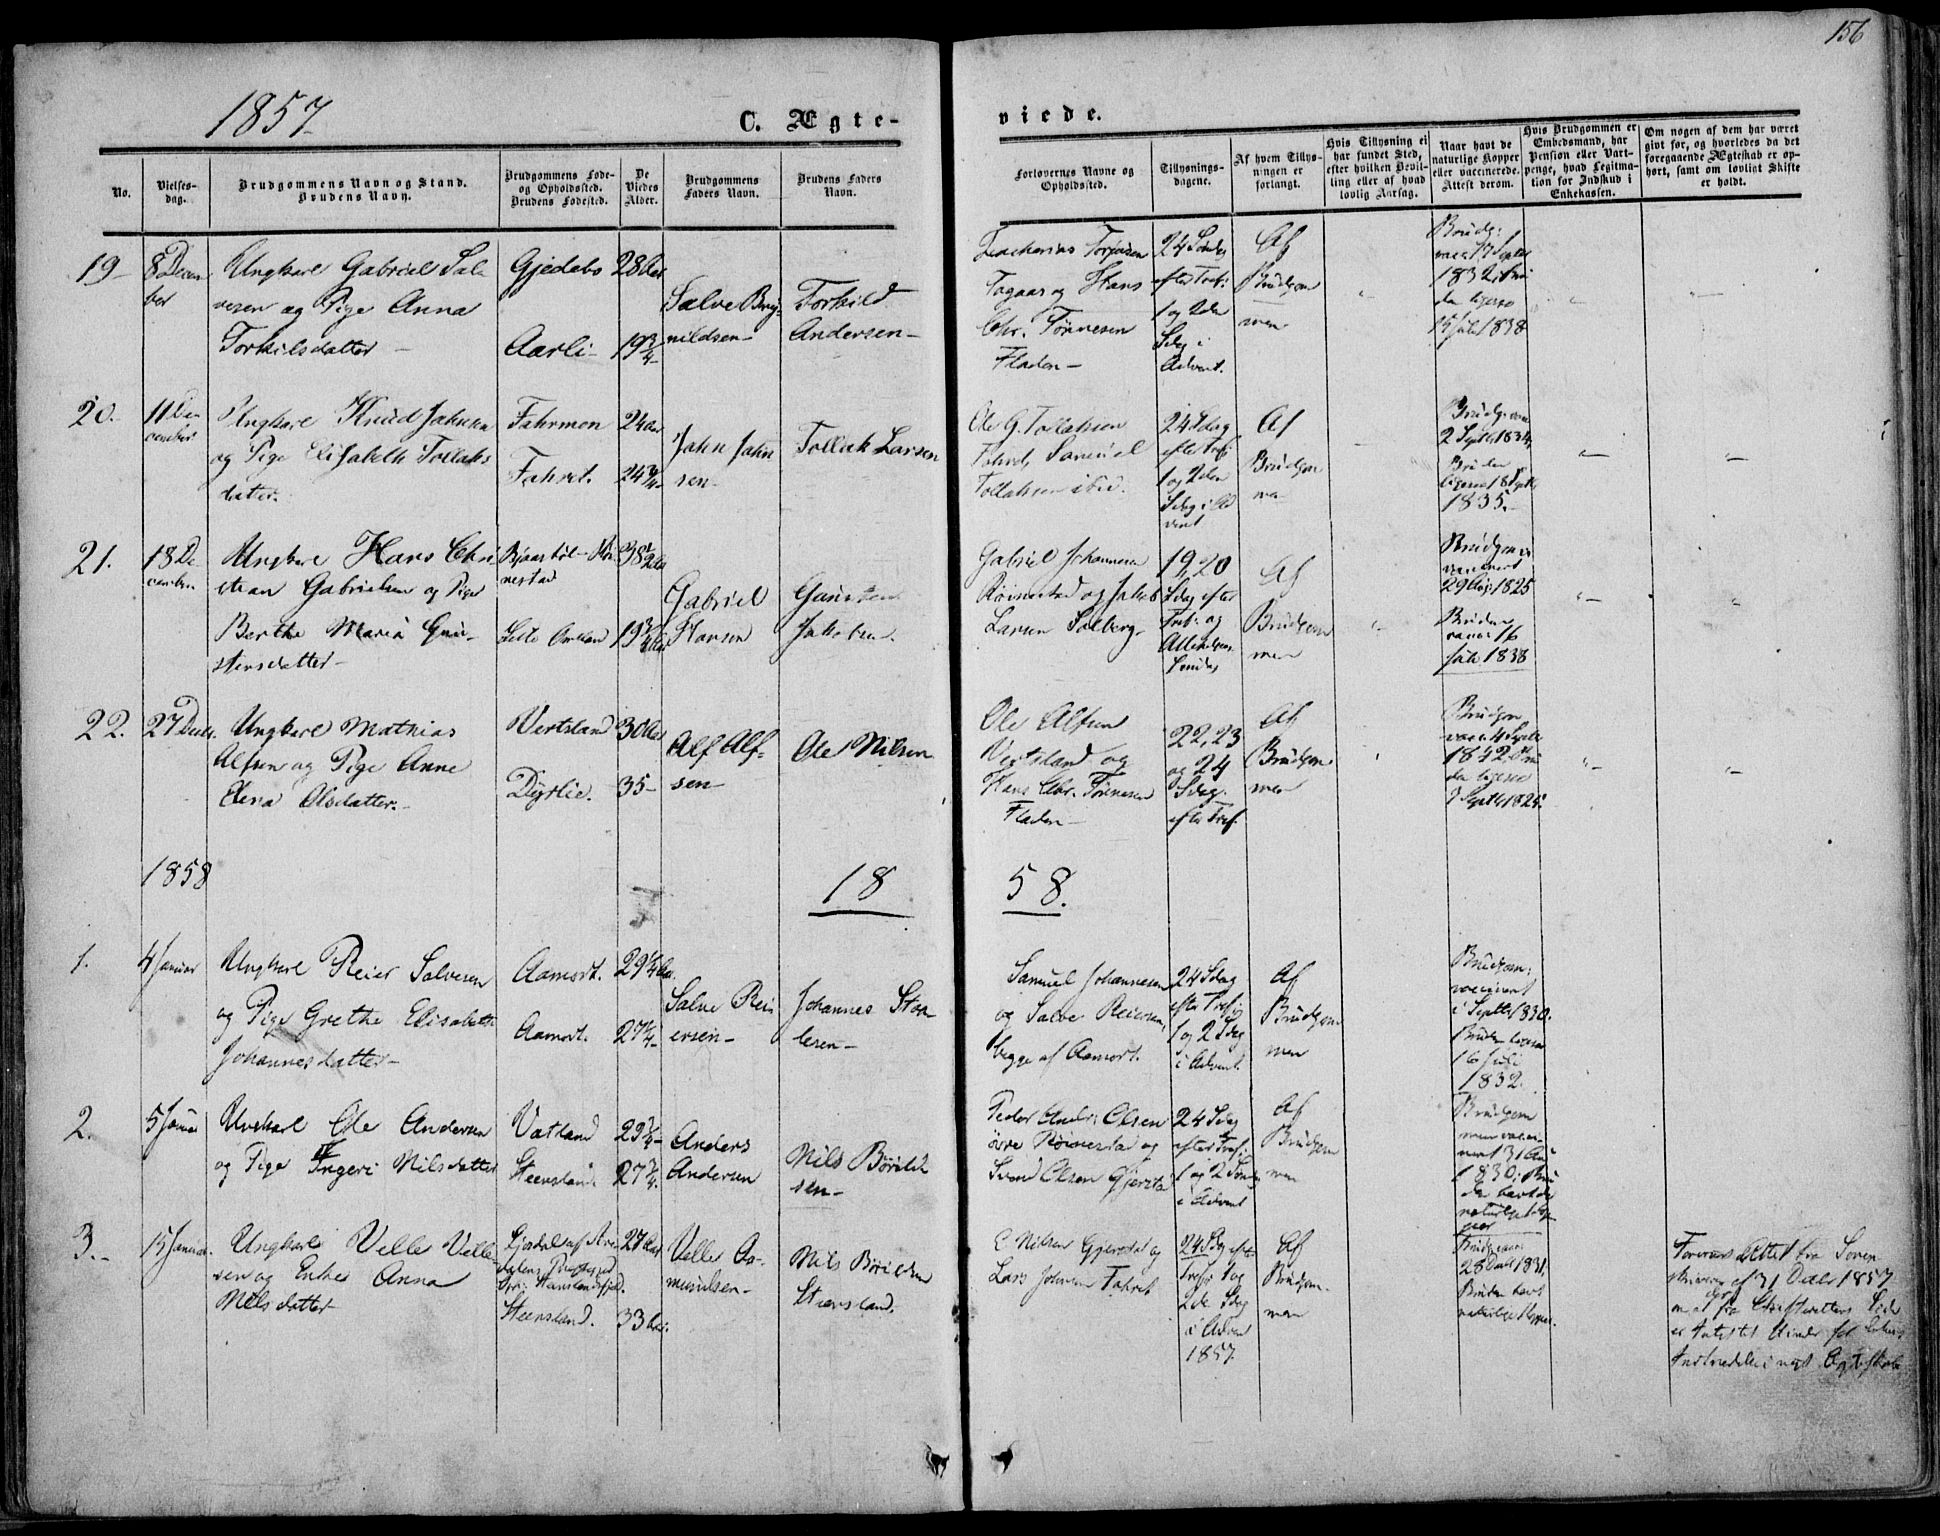 156
1857
C. Ægte-
viede.
No.
Vielses-
dag.
Brudgommens Navn og Stand.
Brudens Navn.
Brudgommens Føde-
og Opholdssted.
Brudens Fødested.
De
Viedes
Alder.
Brudgommens
Faders Navn.
Brudens Faders
Navn.
Forlovernes Navne og
Opholdssted.
Tillysnings-
dagene.
Af hvem Tillys-
ningen er
forlangt.
Hvis Tillysning ei
har fundet Sted,
efter hvilken Bevil-
ling eller af hvad
lovlig Aarsag.
Naar havt de
naturlige Kopper
eller vaccinerede.
Attest derom.
Hvis Brudgommen er
Embedsmand, har
Pension eller Vart-
penge, hvad Legitima-
tion for Indskud i
Enkekassen.
Om nogen af dem har været
gift før, og hvorledes da det
foregaaende Ægteskab er op-
hørt, samt om lovligt Skifte
er holdt.
19-
8 Decem
ber
Ungkarl Gabriel Sal
vesen og Pige Anna
Torkilsdatter -
Gjedebo
Aarli-
28 Aar
19 3/4-
Salve
nildsen-
Torkild
Andersen-
Zacharias Torjusen
og Hans
Chr. Tønnesen
Fladen-
24 Søndag
efter Tref:
1 og 2den
Sdag i
Advent.
Af
Brudgom
men
Brudg:
vacc. 17 Septbr
1832, Bru
den ligesaa
15 Juli 1838
20.
11 De
cember
Ungkarl Knud Jahnsen
og Pige Elisabeth Tollaks
datter.
Fahrmon
Fahret.
24 Aar
24 3/4-
Jahn Jahn
sen-
Tollak Larsen
Ole G. Tollaksen
Samuel
Tollaksen ibid.
24 Sdag
efter Tref
1 og 2den
Sdag i Ad
vent
Af
Brudgom
men
Brudg. vac.
2 Septbr 1834,
Bruden
ligesaa 18 Septbr
1835.-
21.
18 De-
cember
Ungkarl Hans Chri
stian Gabrielsen og Pige
Berthe Maria Gun-
stensdatter-
38 1/2 Aar
19 3/4 Aar
Gabriel
Hansen
Gunsten
Jakobsen.
Gabriel Johannesen
Røinestad og Jakob
Larsen Solberg-
19, 20
Sdag efter
Tref: og
Allehelgens
Søndag
Af
Brudgom
men
Brudgom
vaccineret
29 Aug: 1825
Bruden
vacc: 16
Juli 1838
22.
27 Decbr.
Ungkarl Mathias
Alfsen og Pige Anne
Elena Olsdatter.-
Vertsland
Dyrlie.
30 Aar
35-
Alf Alf-
sen-
Ole Nilsen
Ole Alfsen
Vertsland og
Hans Chr. Tønnesen
Fladen-
22, 23
og 24
Sdag.
efter Tref.
Af
Brudgom
men
Brudgom
vacc. 4 Septbr
1842, Bru
den ligesaa
Septbr 1825.
1858
18
58.
1.
4 Januar
Ungkarl Reier Salvesen
og Pige Grethe Elisabeth
Johannesdatter-
Aamort.
Aamort.
29 1/4 Aar.
27 1/4-
Salve Rei
ersen-
Johannes Staa-
lesen-
Samuel Johannesen
og Salve Reiersen,
begge af Aamort.
24 Sdag
efter Tref:
1 og 2 Sdag
i Advent
Af
Brudgom
men
Brudgom:
vaccineret
i Septbr 1830.
Bruden ligesaa
16 Juli
1832.
2.
5 Januar
Ungkarl Ole Andersen
og Pige Ingeri Nilsdatter
Vatland
Steensland.
29 3/4-
27 3/4.
Anders
Andersen
Nils Børild
sen-
Peder Andr: Olsen
øvre Røinestad og
Svend Olsen Gjerstad
24 Sdag
efter Tref:
1 og 2 Søndag
i Advent
Af
Brudgom
men
Brudgom
men vacci-
neret 31 Au
1830, Bru
den havt de
naturlige Kop
per
3.-
15 Januar.
Ungkarl Velle Velle-
sen og Enke Anna
Nilsdatter
Steensland.
27 Aar
33 Aar.
Velle Aa-
mundsen-
Nils Børildsen
Steensland.
E Nilsen Gjerstad og
Lars Johnsen Fahret
24 Sdag efter
Tref: 1 og
2de Sdag
i Advent
1857.
Af
Brudgom-
men
28 Decbr 1831,
Bruden havt
naturlige Kopper.
Foreviist Attest fra Soren
skriveren af 31 Decbr 1857
om at fra Skifterettens Side
er Intet til Hinder for Enkens
Indtrædelse i nyt Ægteskab